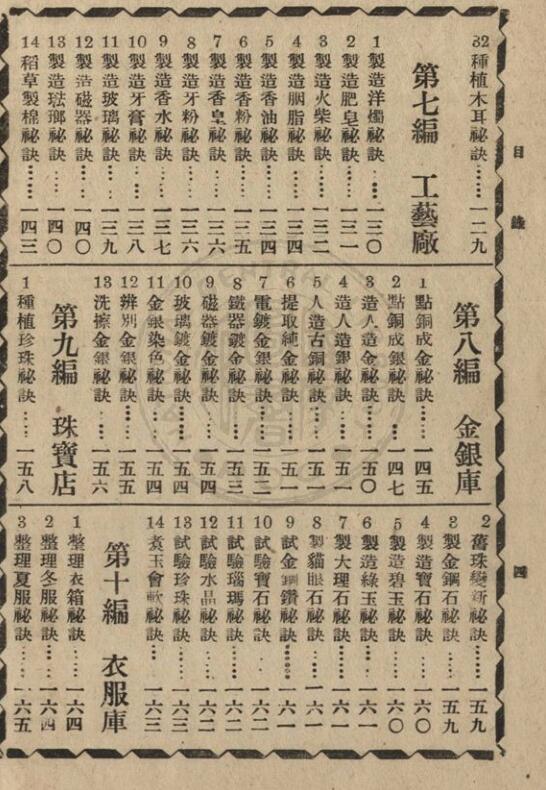 目錄
四
32 種植木耳祕訣……一二九
第七編 工藝廠
1 製造洋燭祕訣……一三〇
2 製造肥皂祕訣……一三一
3 製造火柴祕訣……一三二
4 製造胭脂祕訣……一三四
5 製造香油祕訣……一三四
6 製造香粉祕訣……一三五
7 製造香皇祕訣……一三六
8 製造牙粉祕訣……一三六
9 製造香水祕訣……一三七
10 製造牙膏祕訣……一三八
11 製造玻璃祕訣……一三九
12 製造磁器祕訣……一四〇
13 製造琺瑯祕訣……一四〇
14 稻草製棉祕訣……一四三
第八編 金銀庫
1 點銅成金祕訣……一四五
2 點銅成銀祕訣……一四七
3 造人造金祕訣……一五〇
4 造人造銀祕訣……一五一
5 人造古銅祕訣……一五一
6 提取純金祕訣……一五一
7 電鍍金銀祕訣……一五二
8 鐵器鍍金祕訣……一五三
9 磁器鍍金祕訣……一五四
10 玻璃鍍金祕訣……一五四
11 金銀染色祕訣……一五四
12 辨別金銀祕訣……一五五
13 洗擦金銀祕訣……一五六
第九編 珠寶店
1 種植珍珠祕訣……一五八
2 舊珠變新祕訣……一五九
3 製金鋼石祕訣……一五九
4 製造寶石祕訣……一六〇
5 製造碧玉祕訣……一六〇
6 製造綠玉祕訣……一六一
7 製大理石祕訣……一六一
8 製貓眼石祕訣……一六一
9 試金鋼鑽祕訣……一六一
10 試驗寶石祕訣……一六二
11 試驗瑙瑪祕訣……一六二
12 試驗水晶祕訣……一六二
13 試驗珍珠祕訣……一六三
14 煮玉會軟祕訣……一六三
第十編 衣服庫
1 整理衣箱祕訣……一六四
2 整理冬服祕訣……一六四
3 整理夏服祕訣……一六五